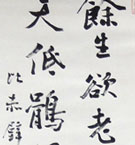 餘生欲老
天低鶻
比赤壁